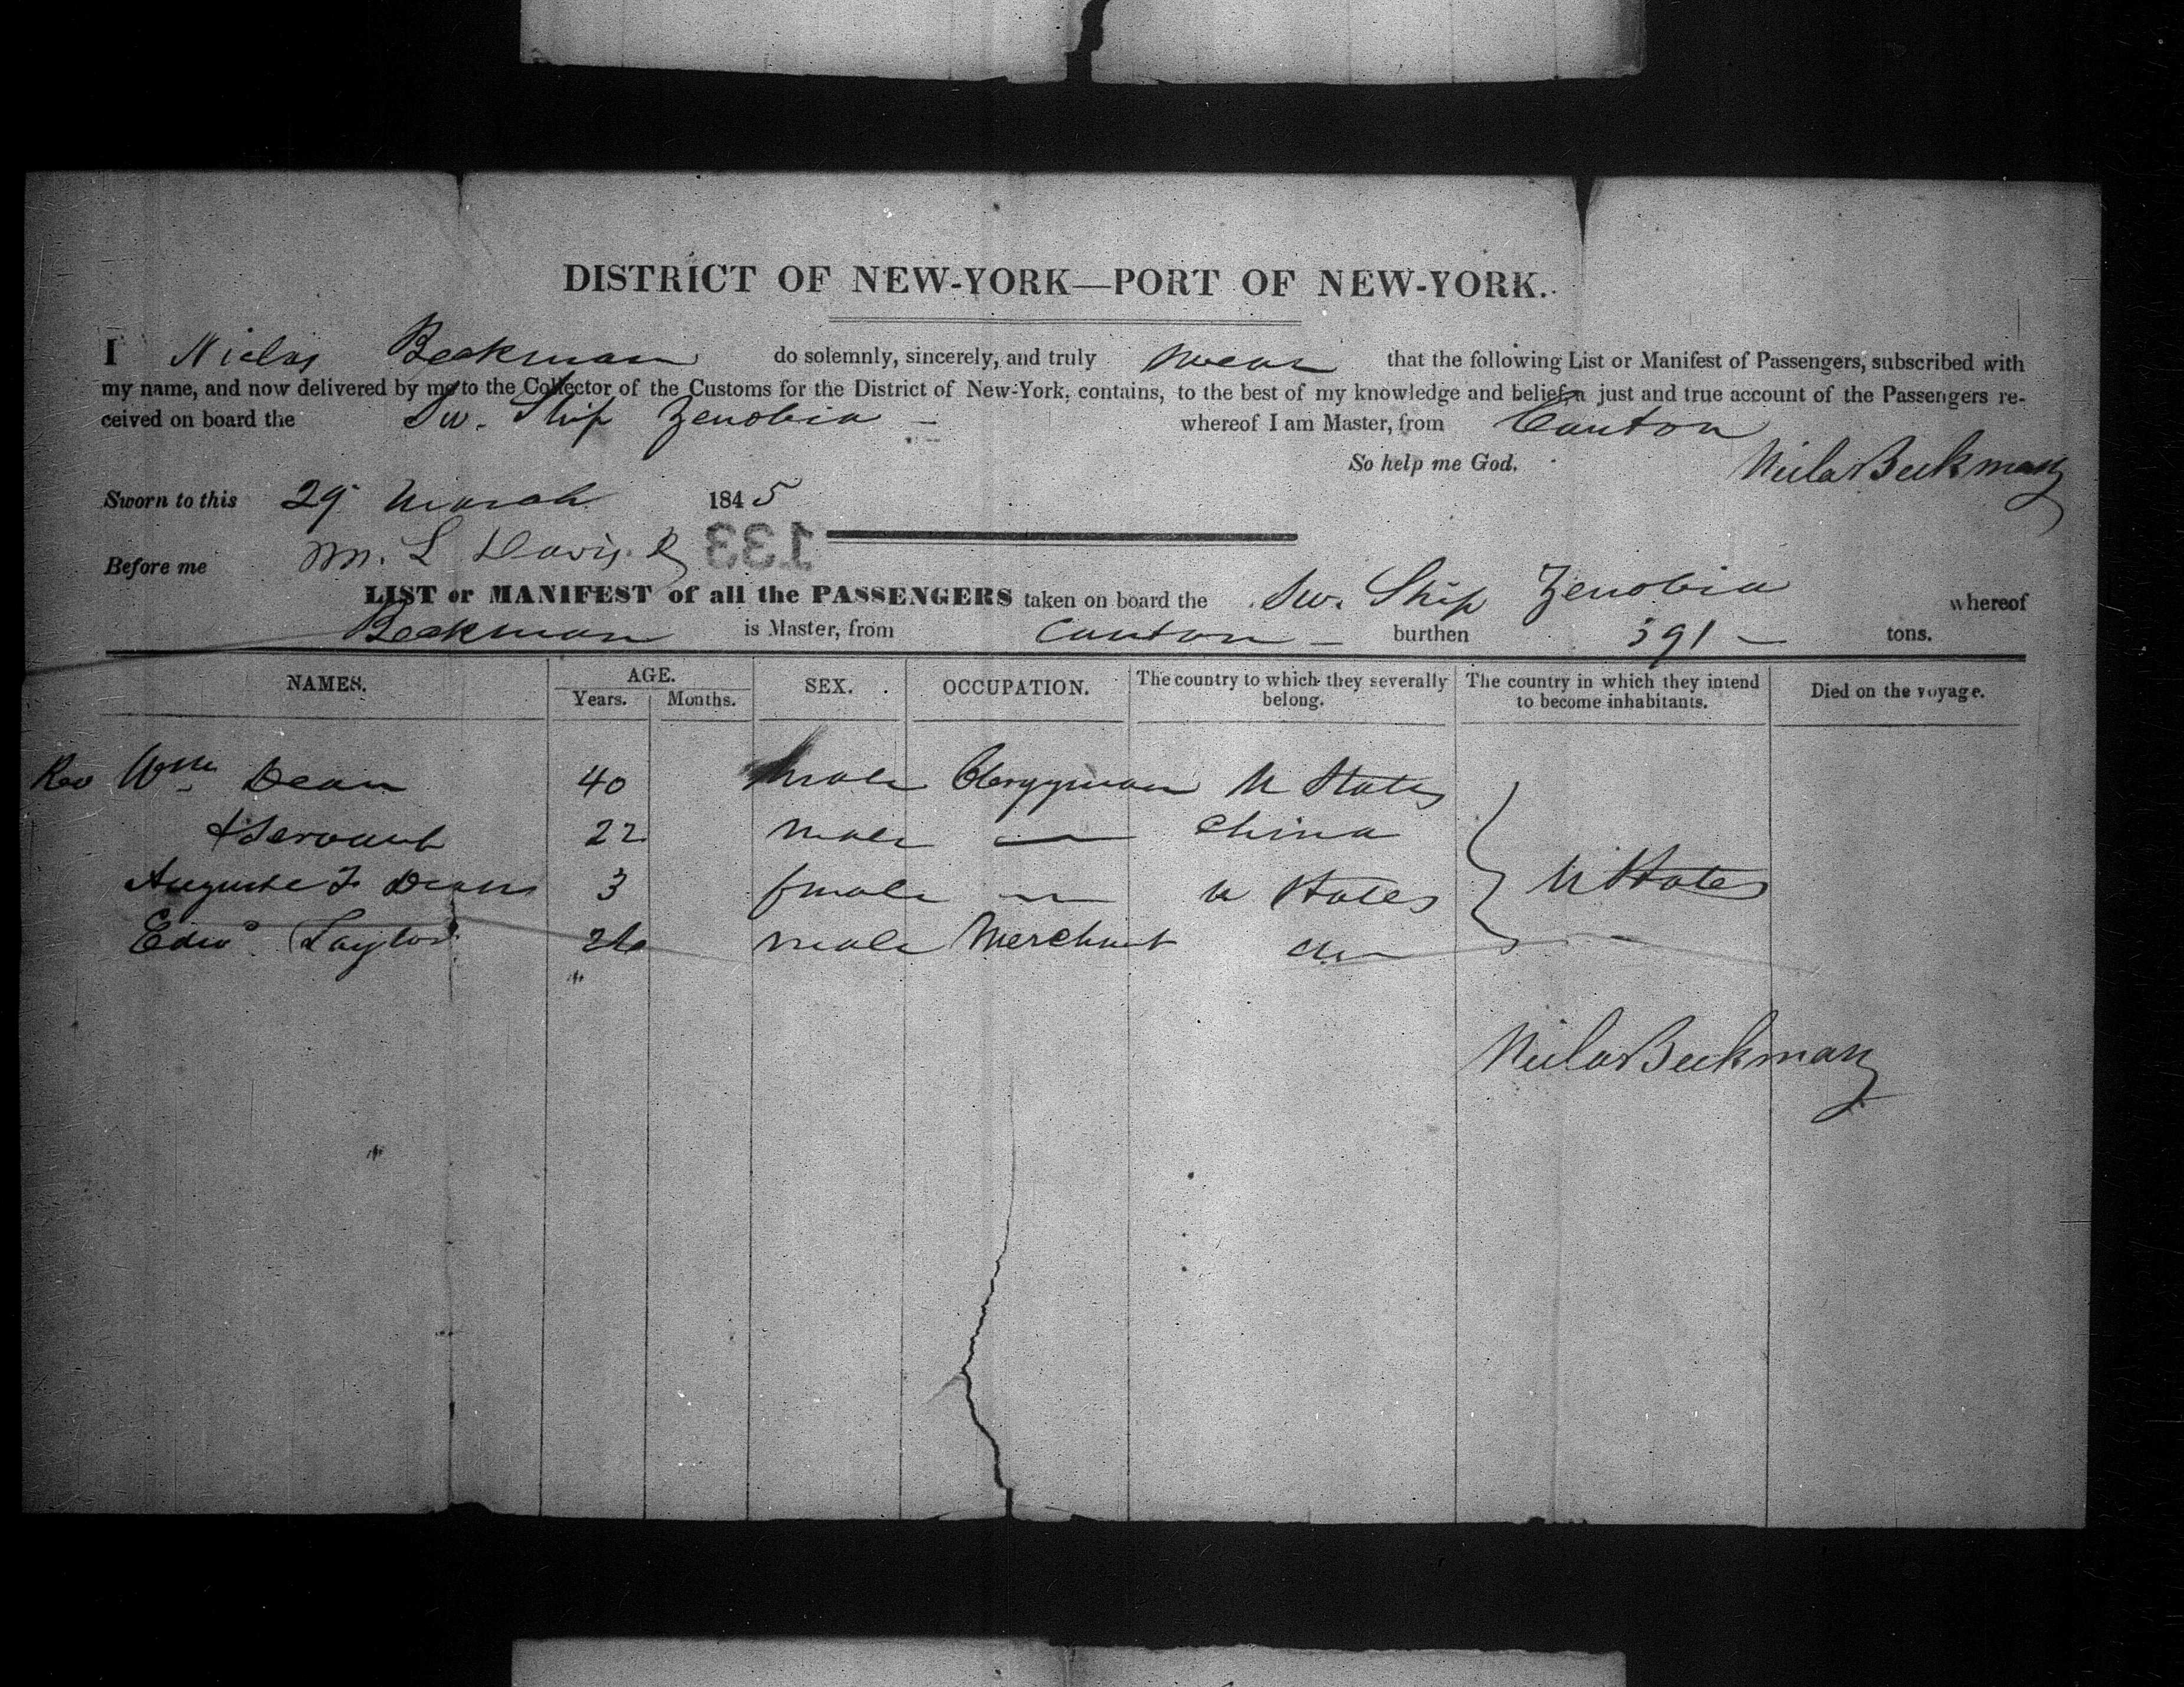 DISTRICT OF NEW-YORK—PORT OF NEW-YORK.
I Niclas Beckman do solemnly, sincerely, and truly swear that the following List or Manifest of Passengers, subscribed with
my name, and now delivered by me to the Collector of the Customs for the District of New-York, contains, to the best of my knowledge and belief, a just and true account of the Passengers re-
ceived on board the Sw. Ship Zenobia – whereof I am Master, from Canton
So help me God. Niclas Beckman
Sworn to this 29 March 1845
133
Before me M. L Davis
LIST or MANIFEST of all the PASSENGERS taken on board the Sw. Ship Zenobia whereof
Beckman is Master, from Canton – burthen 391 – tons.
NAMES. AGE. SEX. OCCUPATION. The country to which they severally belong. The country in which they intend to become inhabitants. Died on the voyage.
Years. Months.
Rev Wm Dean 40 male Clergyman U States
& Servant 22 male — China
Auguste F Dean 3 fmale — U States U States
Edwd Taylor male Merchant
Niclas Beckman